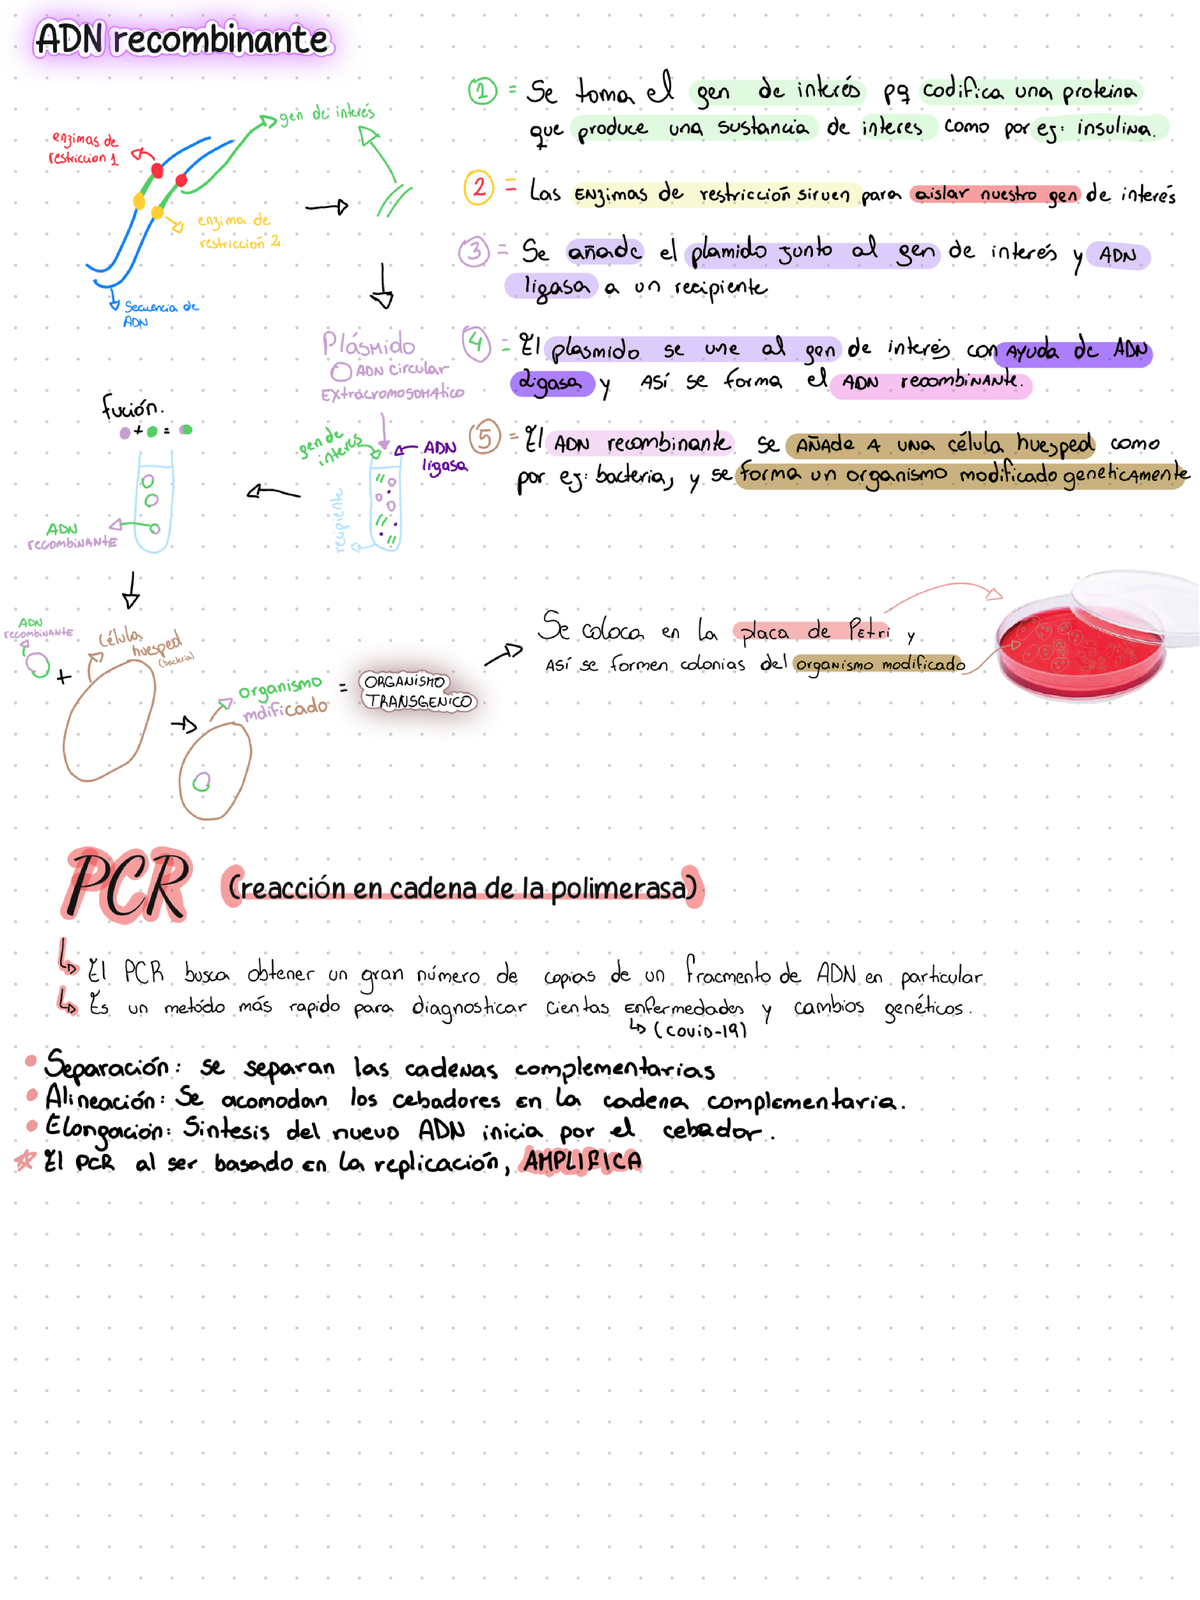 ADN recombinante
1 = Se toma el gen de interés pq codifica una proteina
que produce una sustancia de interes como por ej: insulina.
2 = Las Enzimas de restricción sirven para aislar nuestro gen de interés
3 = Se añade el plamido junto al gen de interés y ADN
ligasa a un recipiente
4 = El plasmido se une al gen de interés con AYUDA de ADN
Ligasa y ASí se forma el ADN recombinante.
5 = El ADN recombinante se AÑADE A UNA célula huesped como
por ej: bacteria, y se forma un organismo modificado genéticamente
gen de interés
enzimas de
restriccion 1
enzima de
restricción 2
Secuencia de
ADN
Plásmido
ADN circular
Extracromosomatico
gen de
interés
ADN
ligasa
recipiente
fución.
+ =
ADN
recombinante
ADN
recombinante
+
Célula
huesped
(bacteria)
organismo
mdificado
=
ORGANISMO
TRANSGENICO
Se coloca en la placa de Petri y
ASí se formen colonias del organismo modificado
PCR (reacción en cadena de la polimerasa)
El PCR busca obtener un gran número de copias de un fracmento de ADN en particular
Es un metódo más rapido para diagnosticar cientas Enfermedades y cambios genéticos.
(Covid-19)
Separación: se separan las cadenas complementarias
Alineación: Se acomodan los cebadores en la cadena complementaria.
Elongación: Sintesis del nuevo ADN inicia por el cebador.
El PCR al ser basado en la replicación, AMPLIFICA